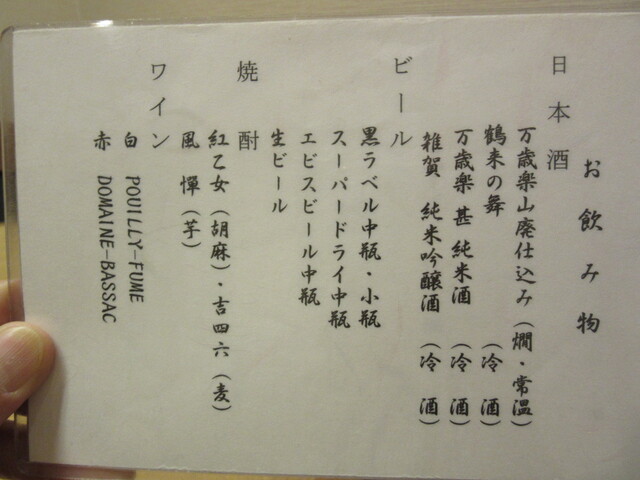 お飲み物
日本酒
万歳楽山廃仕込み（燗・常温）
鶴来の舞　（冷 酒）
万歳楽 甚 純米酒　（冷 酒）
雑賀　純米吟醸酒　（冷 酒）
ビール
黒ラベル中瓶・小瓶
スーパードライ中瓶
エビスビール中瓶
生ビール
焼酎
紅乙女（胡麻）・吉四六（麦）
風憚（芋）
ワイン
白　POUILLY-FUME
赤　DOMAINE-BASSAC